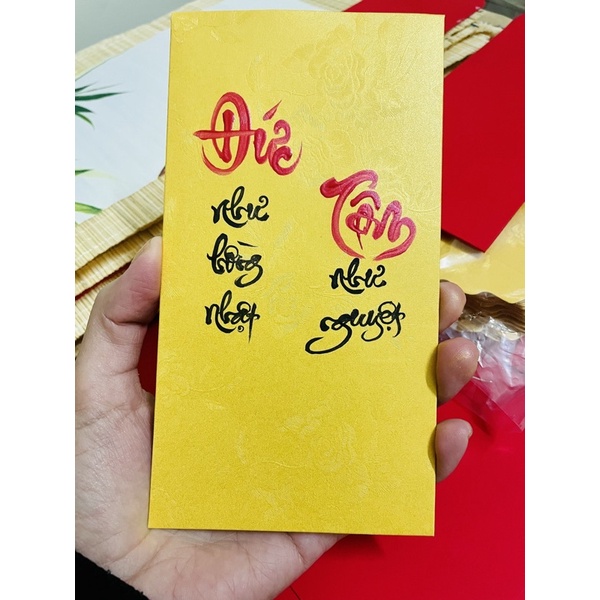 Đức
như
hồng
nhật
Tâm
như
nguyệt